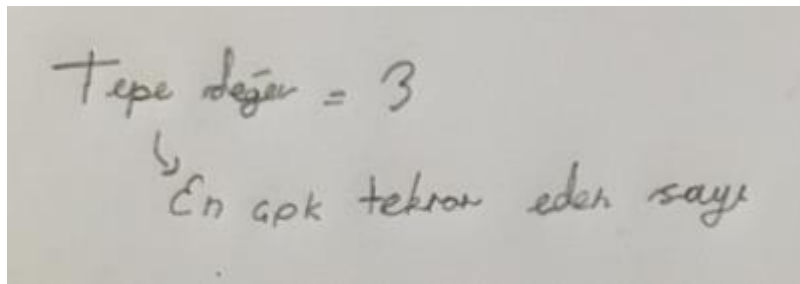 Tepe değer = 3
↳ En çok tekrar eden sayı